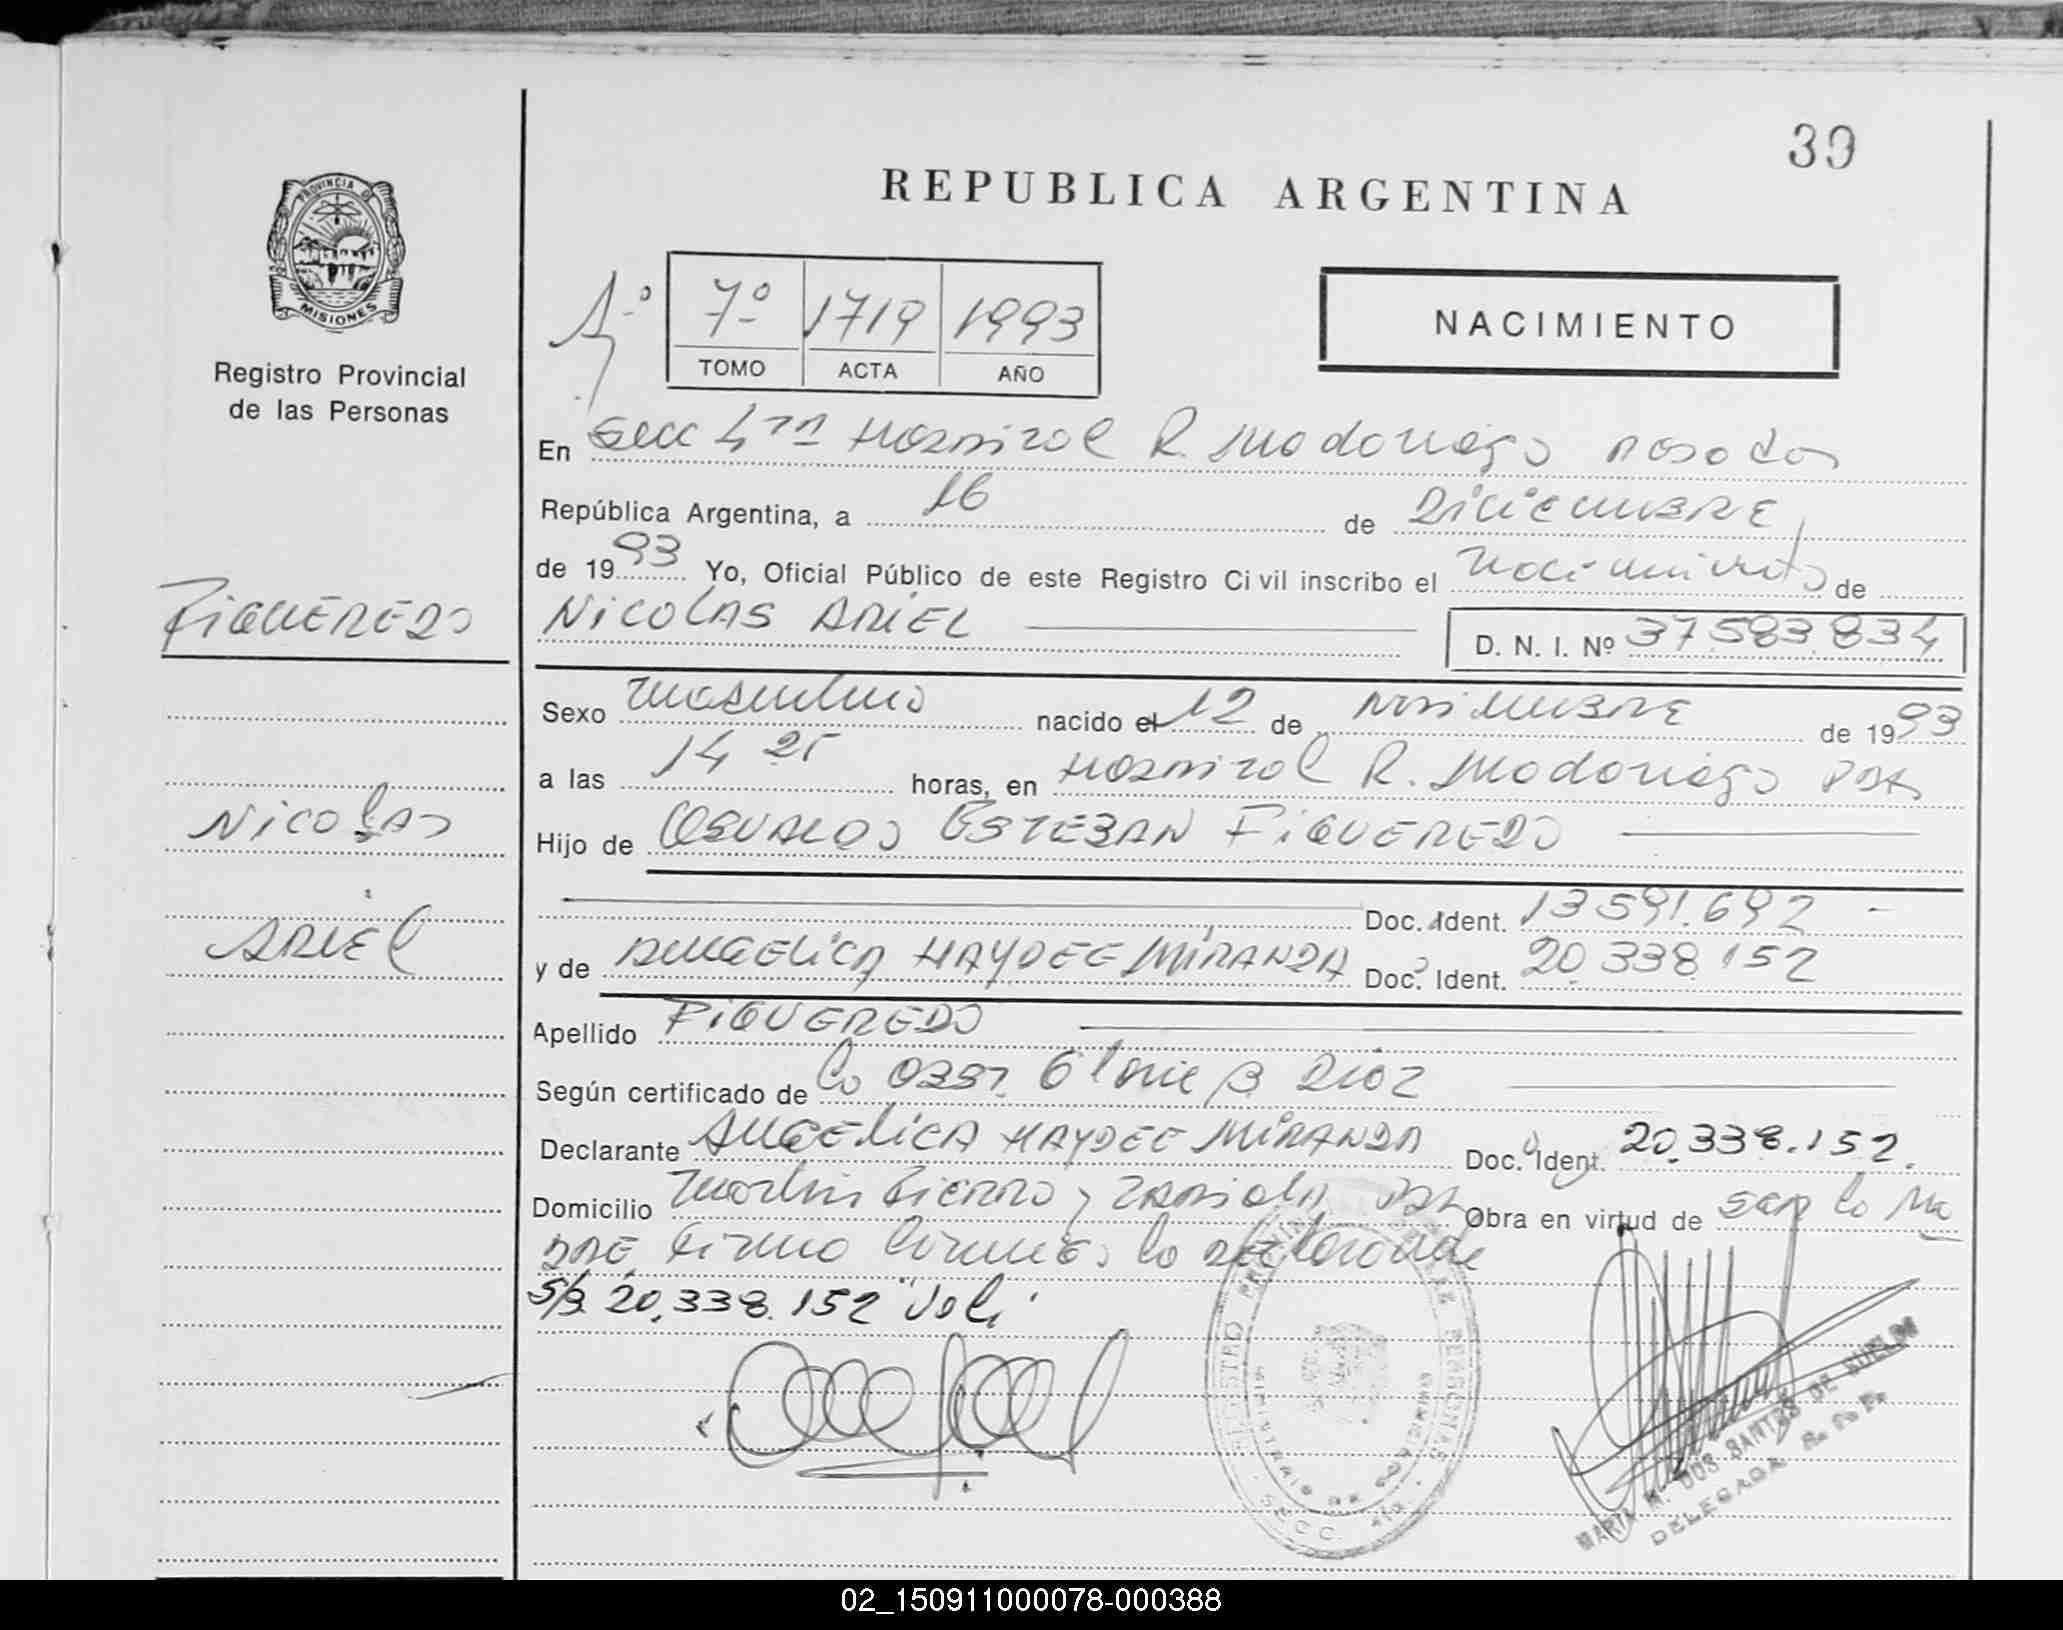 39
REPUBLICA ARGENTINA
PROVINCIA D
MISIONES
Registro Provincial
de las Personas
Aº
7º 1719 1993
TOMO ACTA AÑO
NACIMIENTO
En Secc 4ta Hospital R. Madariaga Posadas
República Argentina, a 16 de Diciembre
de 1993 Yo, Oficial Público de este Registro Civil inscribo el nacimiento de
FIGUEREDO
NICOLAS ARIEL
D. N. I. Nº 37.583.834
Sexo masculino nacido el 12 de Noviembre de 1993
a las 14 25 horas, en Hospital R. Madariaga Pdas
Nicolas
Hijo de OSVALDO ESTEBAN FIGUEREDO
Doc. Ident. 13 591.692 -
ARIEL
y de ANGELICA HAYDEE MIRANDA Doc. Ident. 20 338 152
Apellido FIGUEREDO
Según certificado de la Obst. Gloria B Diaz
Declarante ANGELICA HAYDEE MIRANDA Doc. Ident. 20.338.152.
Domicilio Martin Fierro y Obra en virtud de ser la Ma
dre, Firma la declarante
S/B. 20.338.152 "Vale"
REGISTRO PROVINCIAL DE LAS PERSONAS
MINISTERIO DE GOBIERNO
SECC. 4ta
MARTA M. DOS SANTOS DE
DELEGADA
02_150911000078-000388